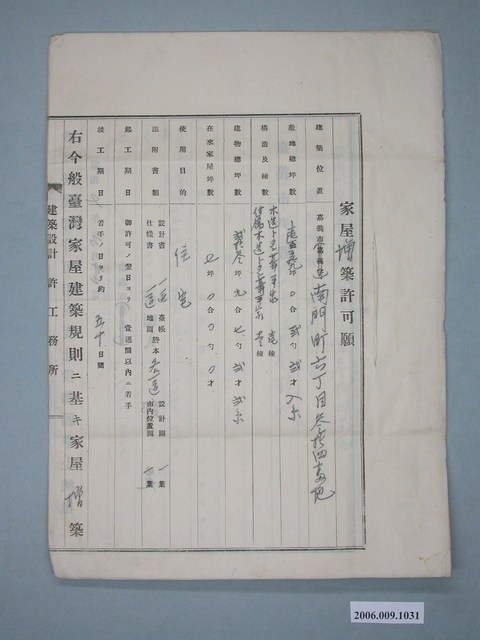 家屋增築許可願
建築位置 嘉義市 南門町六丁目參拾四番地
敷地總坪數 坪〇合貳勺貳才
構造及棟數 木造 平家 壱棟
附屬木造 平家 壱棟
建物總坪數 貳拾參坪九合七勺貳才
在來家屋坪數 坪〇合〇勺〇才
使用目的 住宅
添附書類 設計書 一通 臺帳謄本 壱通 設計圖 一葉
仕樣書 一通 地圖 市內位置圖 一葉
起工期日 御許可ノ翌日ヨリ 壹週間以內ニ着手
竣工期日 着手ノ日ヨリ約 五十 日間
右今般臺灣家屋建築規則ニ基キ家屋增築
建築設計 許工務所
2006.009.1031